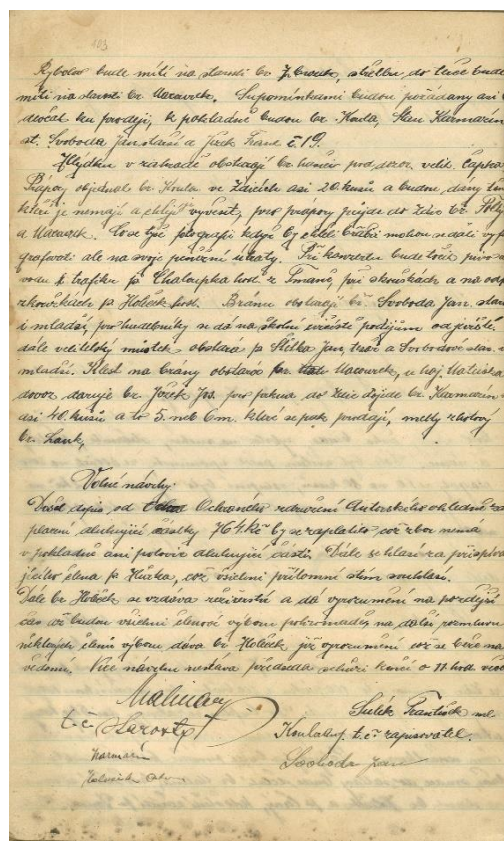 103
Rybolov bude míti na starosti br. J. Cvach, střelbu do terče bude
míti na starosti br. Macourek. Supomínkami budou pořádány asi
děvčát ku prodeji, k pokladně budou br. Koula, Karmarin
st. Svoboda Jan starší a Jírek Frant č 19.
Hlídku v zahradě obstarají br hasiči pod dozor. velit. Čapka
Prápory objednal br. Koula ve Zdicích asi 20 kusů a budou dány těm
kteří je nemají a chtějí vyvěsit, pro prápory půjde do Zdic br.
a Macourek. Co se týče fotografií když by chtěli bratři mohou se dáti vyfo
grafovati ale na svoje peněžní útraty. Při koncertu bude točit pivo a
vodu t. trafiku p. Chaloupka host. z Tmaně, při zkouškách a na odp
zkouškách p. Holeček host. Bránu obstarají bř Svoboda Jan. star
i mladší, pro hudebníky se dá na školní cvičiště podijum od jeviště
dále velitelský můstek obstará p. Jan, tesař a Svobodové star. a
mladší. Klest na brány obstará br. Macourek, u hoj.
dovoz daruje br. Jírek Jos. pro prkna do dojde br. Karmarin
asi 40 kusů a to 5. neb 6 m. které se pak prodají,
br.
Volné návrhy.
Došel dopis od Ochranného sdružení Autorského ohledně za
placení dlužující částky 764 Kč by se zaplatilo, což sbor nemá
v pokladně ani polovic dlužující části. Dále se hlásí za přispíva
jícího člena p. Hůrka, což všichni přítomní s tím souhlasí.
Dále br Holeček se vzdává a dá vyrozumění na pozdější
čas až budou všichni členové výboru pohromadě, na další rozmluvu
některých členů výboru dává br Holeček již vyrozumění což se béře na
vědomí. Více návrhů nestává předseda schůzi končí o 11 hod. več
Malina
t. č. Starosta
Karmarin
František ml.
t. č. zapisovatel.
Svoboda Jan